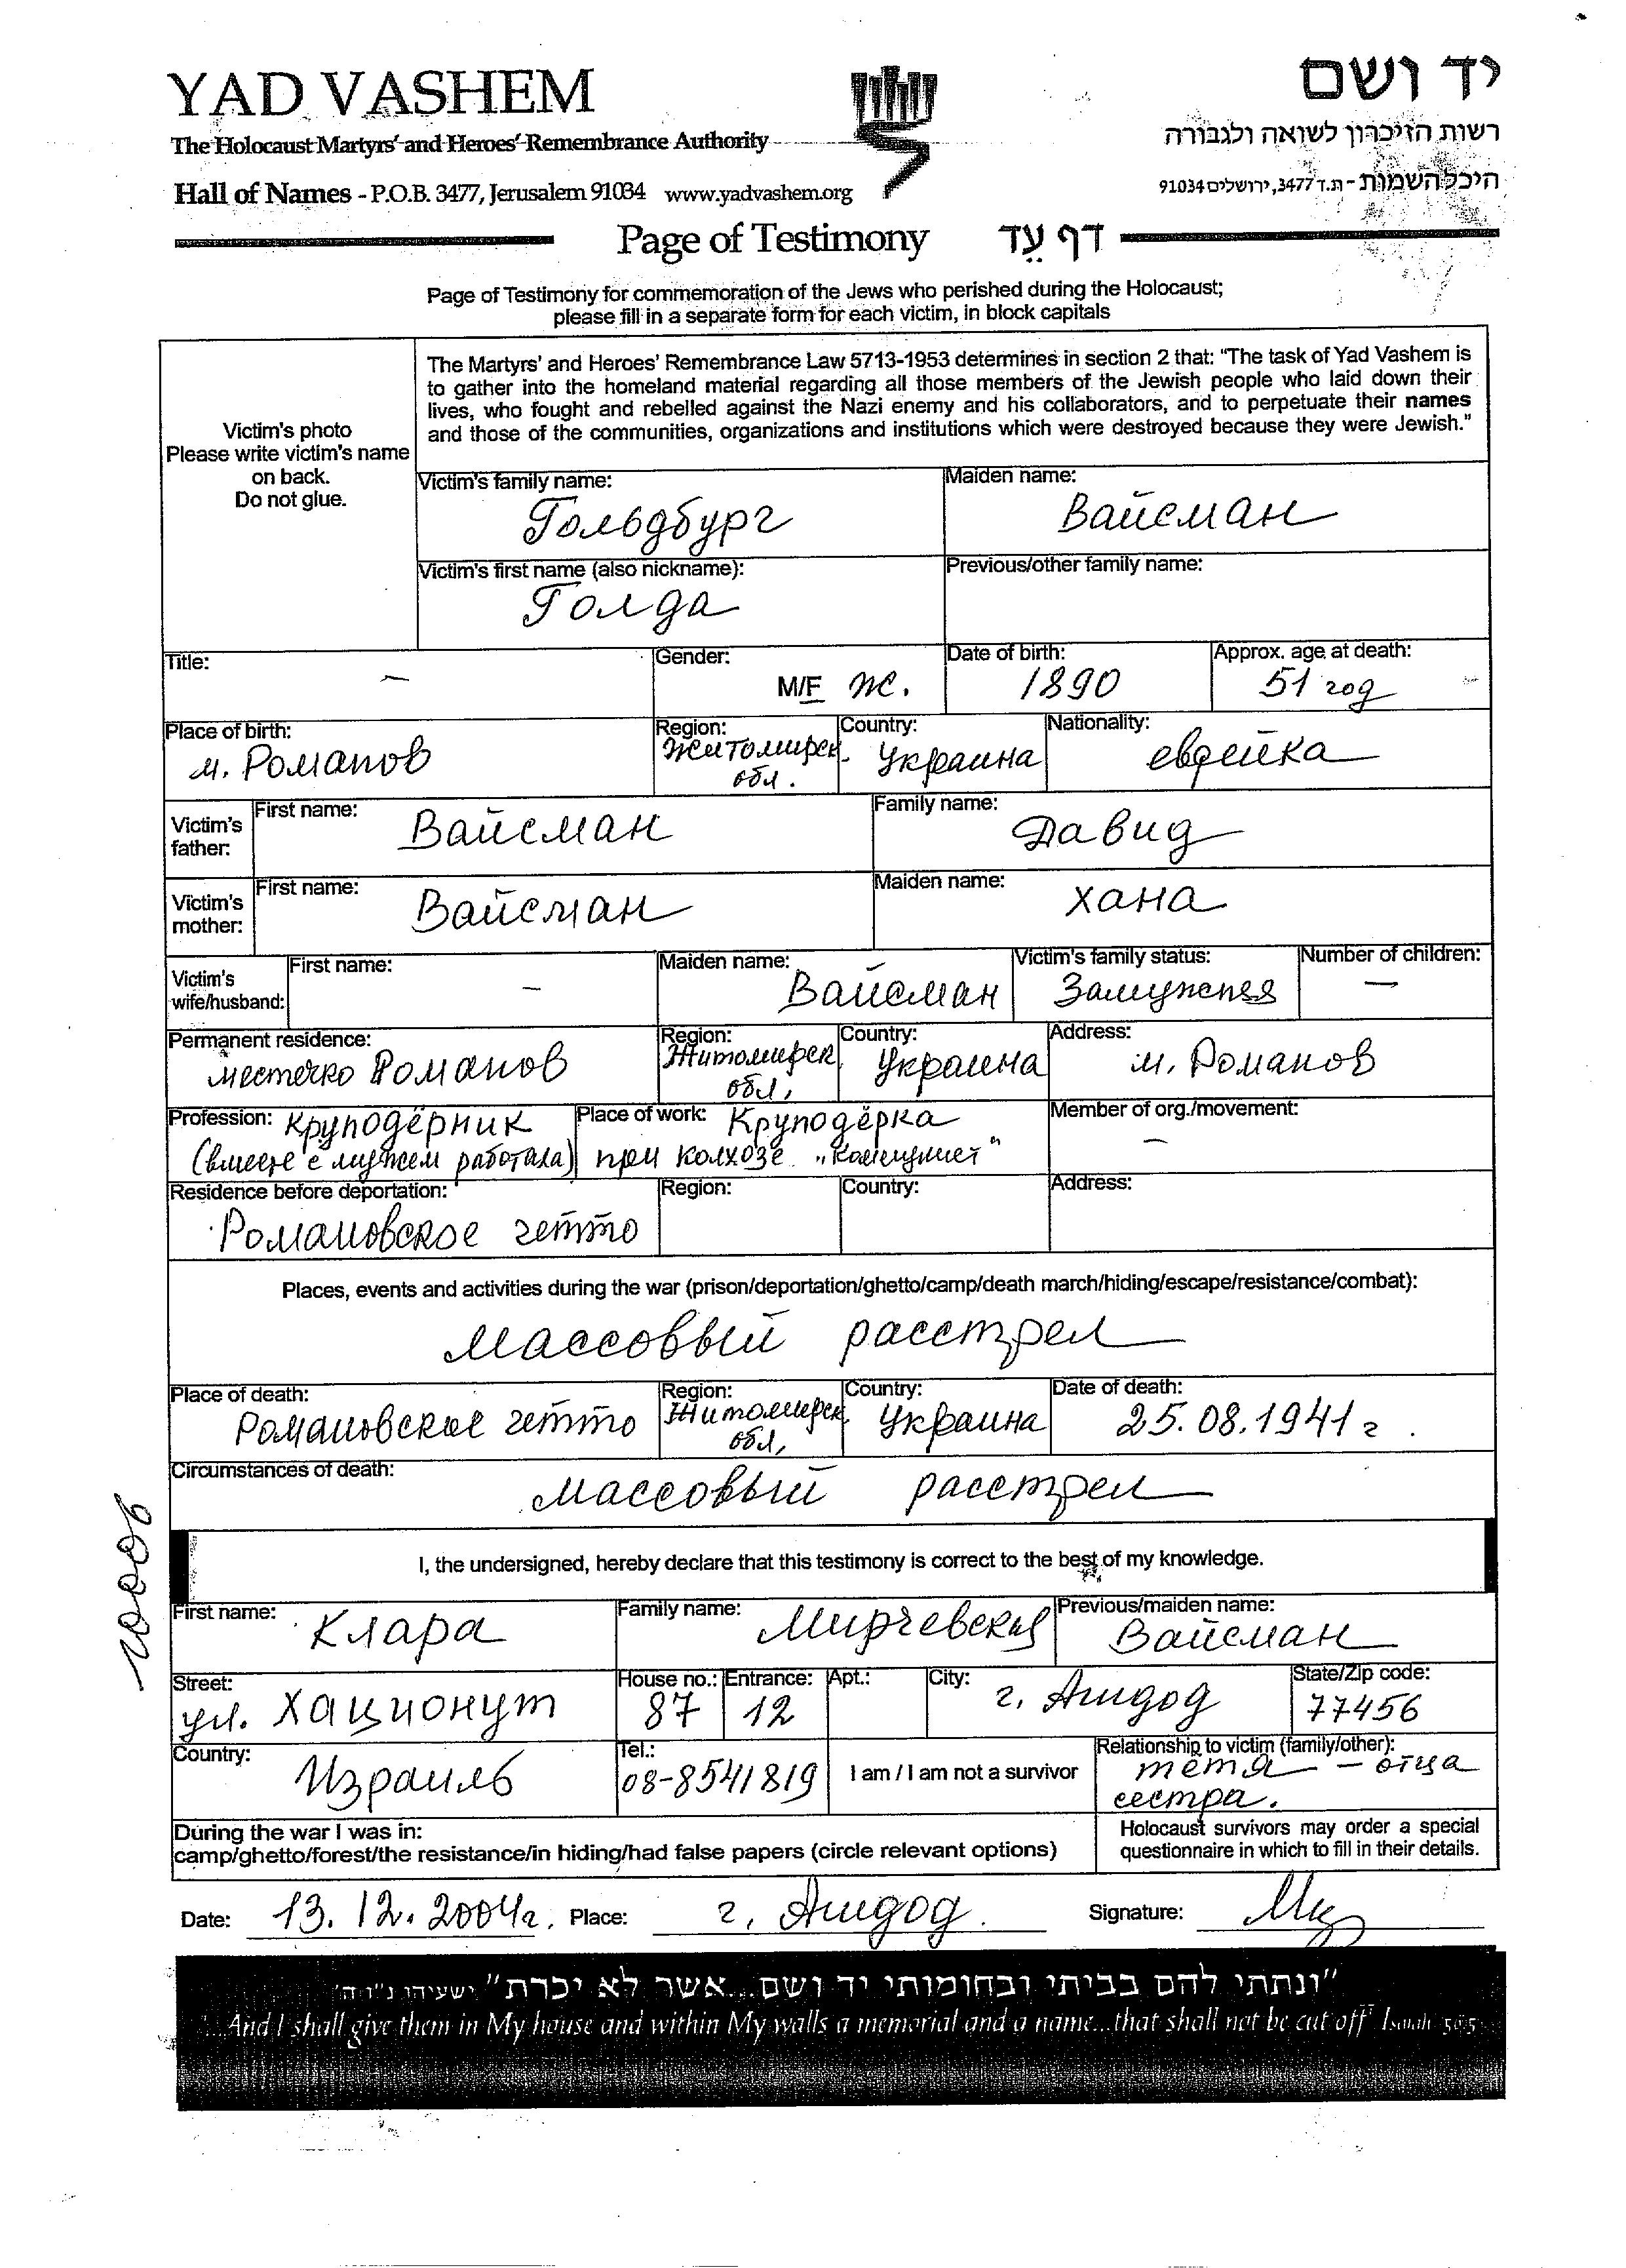 YAD VASHEM
יד ושם
The Holocaust Martyrs' and Heroes' Remembrance Authority
רשות הזיכרון לשואה ולגבורה
Hall of Names - P.O.B. 3477, Jerusalem 91034 www.yadvashem.org
היכל השמות - ת.ד 3477, ירושלים 91034
Page of Testimony דף עֵד
Page of Testimony for commemoration of the Jews who perished during the Holocaust;
please fill in a separate form for each victim, in block capitals
Victim's photo
Please write victim's name
on back.
Do not glue.
The Martyrs' and Heroes' Remembrance Law 5713-1953 determines in section 2 that: "The task of Yad Vashem is
to gather into the homeland material regarding all those members of the Jewish people who laid down their
lives, who fought and rebelled against the Nazi enemy and his collaborators, and to perpetuate their names
and those of the communities, organizations and institutions which were destroyed because they were Jewish."
Victim's family name: Maiden name:
Гольдбург Вайсман
Victim's first name (also nickname): Previous/other family name:
Голда
Title: Gender: Date of birth: Approx. age at death:
– M/F ж. 1890 51 год
Place of birth: Region: Country: Nationality:
м. Романов Житомирск. Украина еврейка
обл.
Victim's father: First name: Family name:
Вайсман Давид
Victim's mother: First name: Maiden name:
Вайсман Хана
Victim's wife/husband: First name: Maiden name: Victim's family status: Number of children:
– Вайсман Замужняя –
Permanent residence: Region: Country: Address:
местечко Романов Житомирск. Украина м. Романов
обл.
Profession: Круподёрник Place of work: Круподёрка Member of org./movement:
(вместе с мужем работала) при колхозе „Коммунист" –
Residence before deportation: Region: Country: Address:
Романовское гетто
Places, events and activities during the war (prison/deportation/ghetto/camp/death march/hiding/escape/resistance/combat):
Массовый расстрел
Place of death: Region: Country: Date of death:
Романовское гетто Житомирск. Украина 25.08.1941 г.
обл.
Circumstances of death:
массовый расстрел
I, the undersigned, hereby declare that this testimony is correct to the best of my knowledge.
First name: Family name: Previous/maiden name:
Клара Мирчевская Вайсман
Street: House no.: Entrance: Apt.: City: State/Zip code:
ул. Хационут 87 12 г. Ашдод 77456
Country: Tel.: Relationship to victim (family/other):
Израиль 08-8541819 I am / I am not a survivor тётя – отца
сестра.
During the war I was in:
camp/ghetto/forest/the resistance/in hiding/had false papers (circle relevant options)
Holocaust survivors may order a special
questionnaire in which to fill in their details.
Date: 13.12.2004г. Place: г. Ашдод. Signature:
"ונתתי להם בביתי ובחומותי יד ושם...אשר לא יכרת" ישעיהו נ"ו ה'
...And I shall give them in My house and within My walls a memorial and a name...that shall not be cut off" Isaiah 56:5